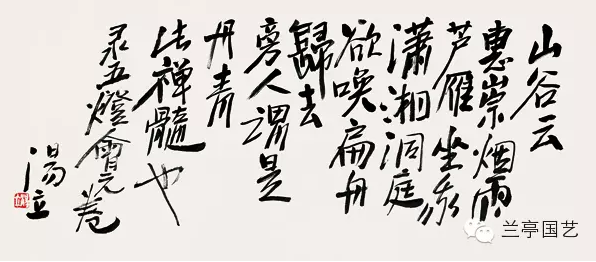 山谷云
惠崇烟雨
芦雁坐我
潇湘洞庭
欲唤扁舟
歸去
旁人谓是
丹青
此禅髓也
录五燈會元卷
湯立
兰亭国艺